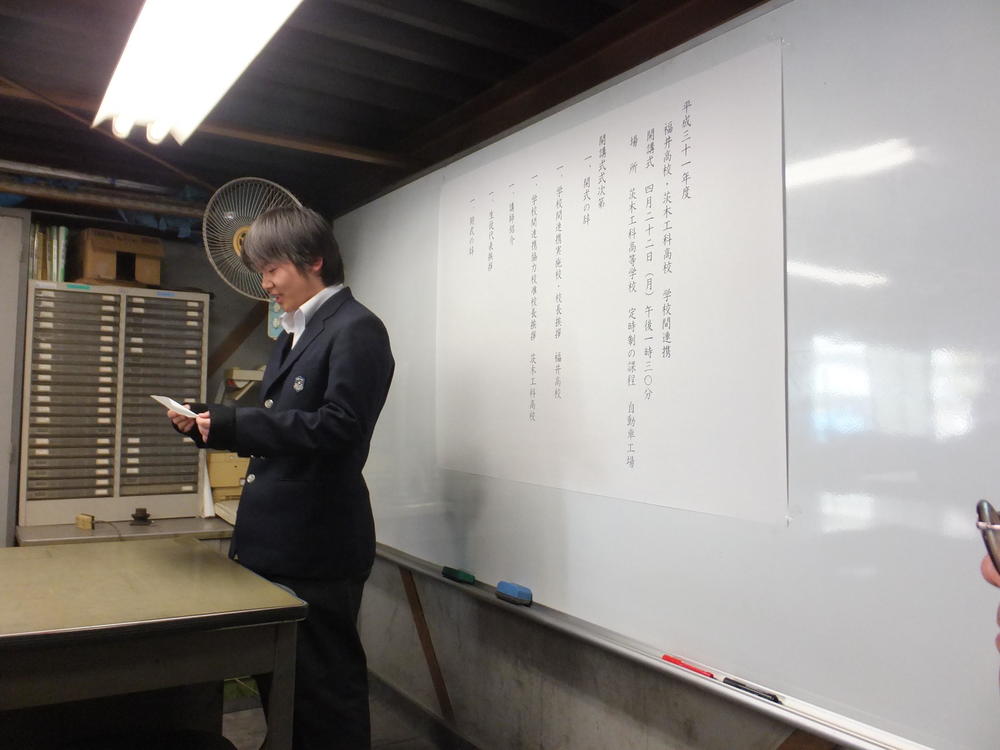 平成三十一年度
福井高校・茨木工科高校 学校間連携
開講式 四月二十二日(月)午後一時三〇分
場 所 茨木工科高等学校 定時制の課程 自動車工場
開講式式次第
一、開式の辞
一、学校間連携実施校・校長挨拶 福井高校
一、学校間連携協力校准校長挨拶 茨木工科高校
一、講師紹介
一、生徒代表挨拶
一、閉式の辞